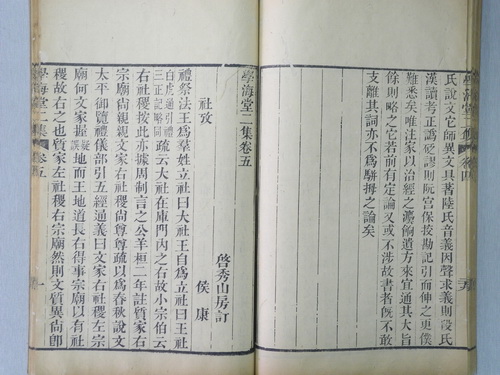 學海堂二集 卷四
氏說文它師異文具著陸氏音義因聲求義則段氏
漢讀考正譌砭謬則阮宮保挍勘記引而伸之更僕
難悉矣唯注家以治經之灋餉遺方來宜通其大旨
餘則略之它若前有定論又或不涉故書者旣不敢
支離其詞亦不爲駢拇之論矣
學海堂二集卷五
啓秀山房訂
社攷
侯康
禮祭法王爲羣姓立社曰大社王自爲立社曰王社
白虎通引禮三正記略同疏云大社在庫門內之右故小宗伯云
右社稷按此亦據周制言之公羊桓二年註質家右
宗廟尚親親文家右社稷尚尊尊疏以爲春秋說文
太平御覽禮儀部引五經通義曰文家右社稷左宗
廟何文家握疑誤地而王地道長右得事宗廟以有社
稷故右之也質家左社稷右宗廟然則文質異尚卽
學海堂二集 卷五 一